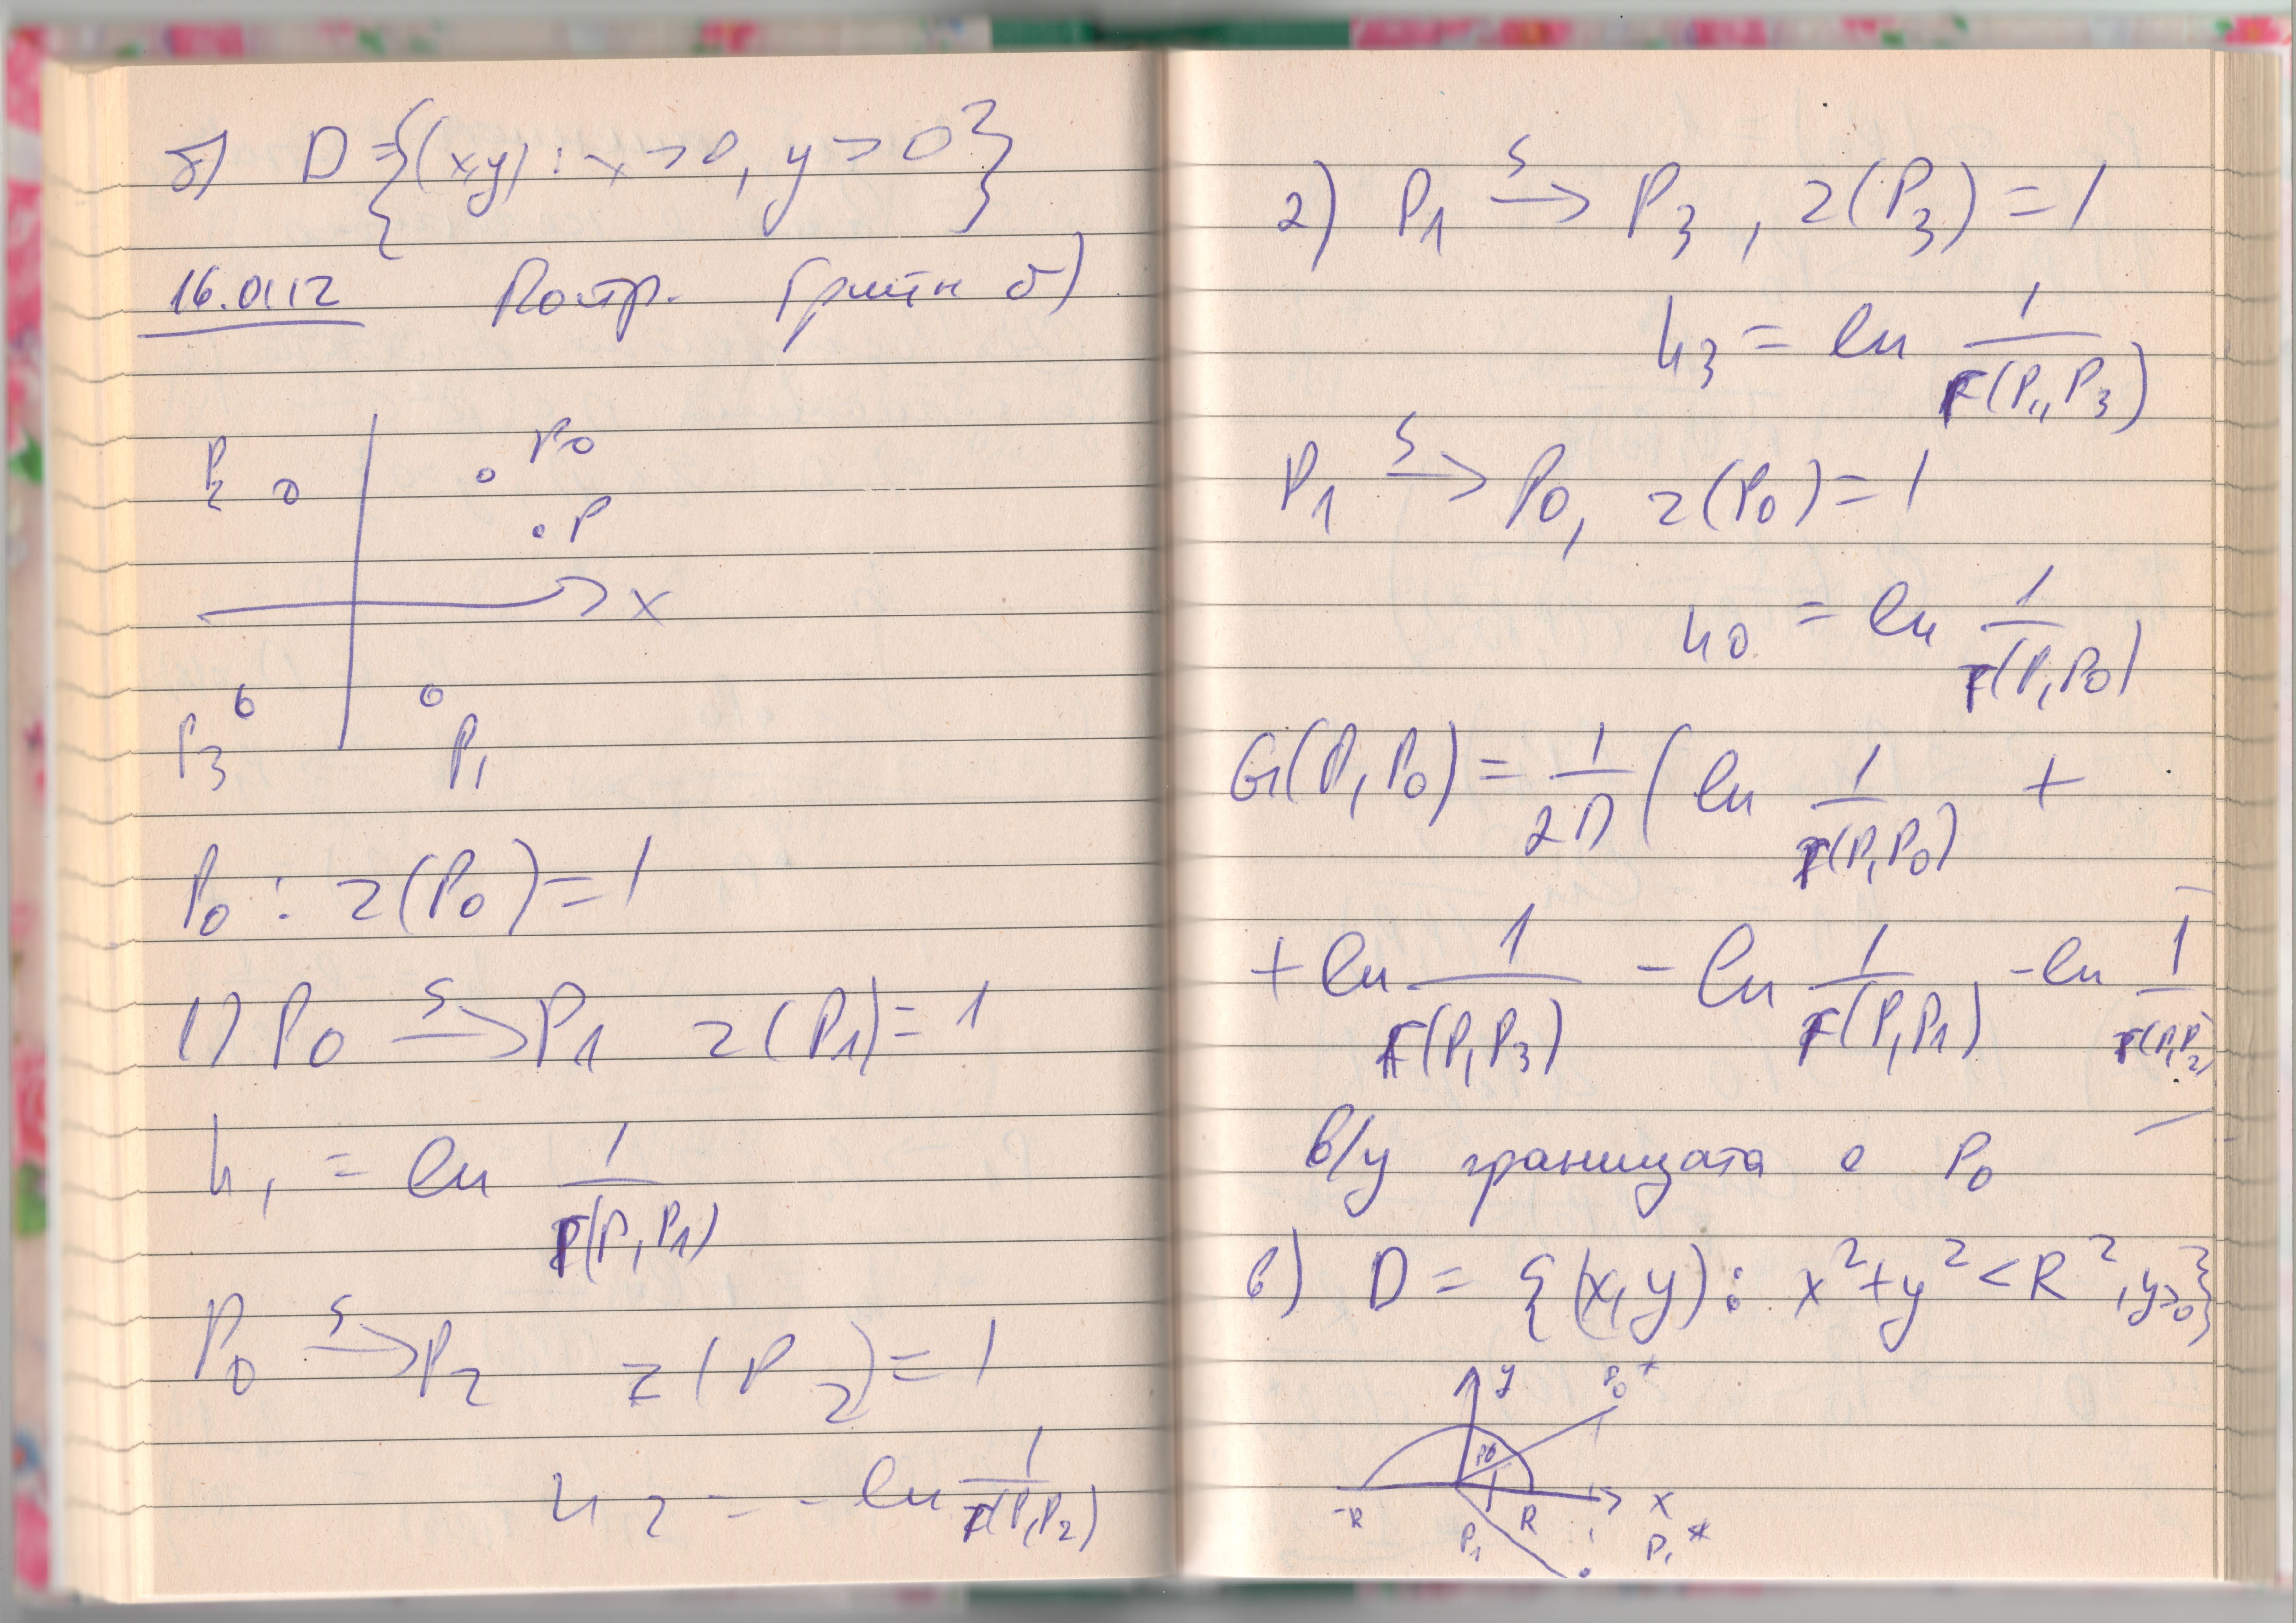 б) D = {(x,y) : x > 0, y > 0}
16.01.12 Постр. Грийн б)
P2 P0
P
x
P3 P1
P0 : z(P0) = 1
1) P0 →s P1 z(P1) = 1
u1 = ln 1/r(P, P1)
P0 →s P2 z(P2) = 1
u2 = - ln 1/r(P, P2)
2) P1 →s P3, z(P3) = 1
u3 = ln 1/r(P, P3)
P1 →s P0, z(P0) = 1
u0 = ln 1/r(P, P0)
G(P, P0) = 1/2π (ln 1/r(P, P0) +
+ ln 1/r(P, P3) - ln 1/r(P, P1) - ln 1/r(P, P2)
в/у границата е P0
в) D = {(x, y) : x² + y² < R², y > 0}
y P0*
P0
-R R x
P1 P1*